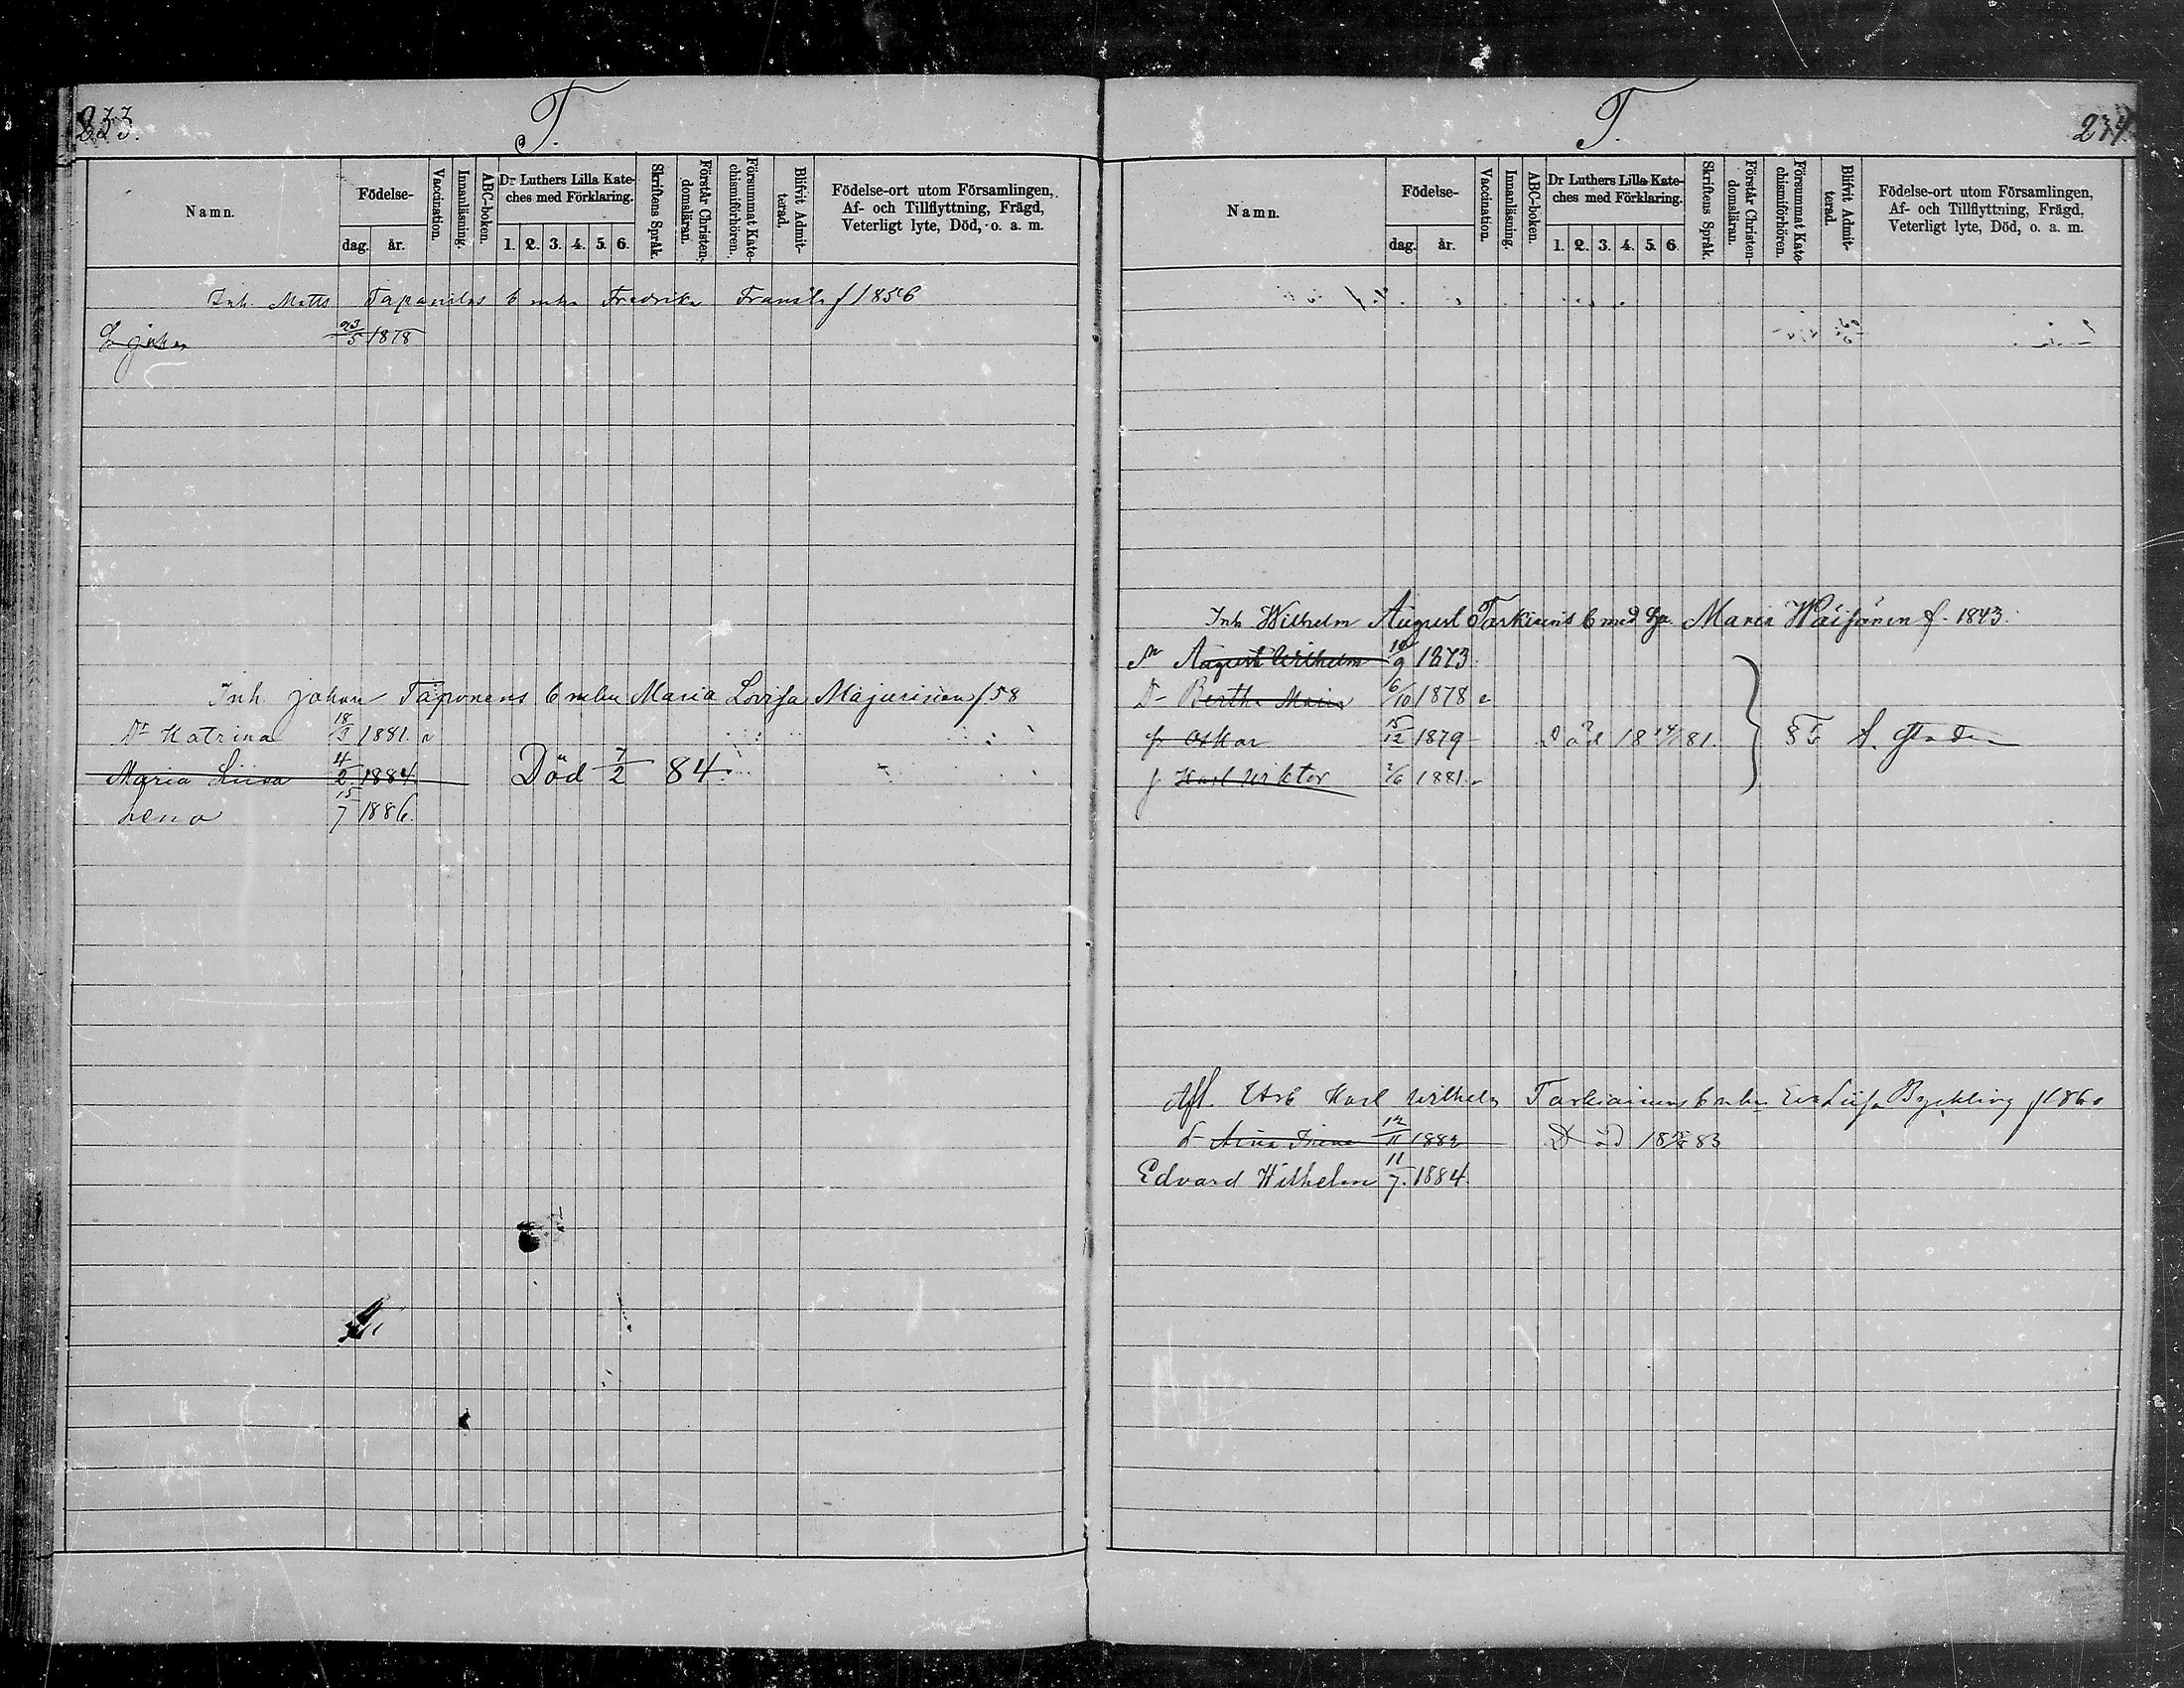 233.
T.
Namn.
Födelse-
dag. år.
Vaccination.
Innanläsning.
ABC-boken.
Dr Luthers Lilla Kate-
ches med Förklaring.
1. 2. 3. 4. 5. 6.
Skriftens Språk.
Förstår Christen-
domsläran.
Försummat Kate-
chismiförhören.
Blifvit Admit-
terad.
Födelse-ort utom Församlingen,
Af- och Tillflyttning, Frägd,
Veterligt lyte, Död, o. a. m.
Inh. Matts Tapanilas Fredrika f 1856
23/5 1878
Inh. Johan Taponens Maria Lovisa Majurinen f 58
Dr Katrina 18/3 1881.
Maria Liisa 4/2 1884 Död 7/2 84.
Lena 15/7 1886.
T.
234.
Namn.
Födelse-
dag. år.
Vaccination.
Innanläsning.
ABC-boken.
Dr Luthers Lilla Kate-
ches med Förklaring.
1. 2. 3. 4. 5. 6.
Skriftens Språk.
Förstår Christen-
domsläran.
Försummat Kate-
chismiförhören.
Blifvit Admit-
terad.
Födelse-ort utom Församlingen,
Af- och Tillflyttning, Frägd,
Veterligt lyte, Död, o. a. m.
Inh. Wilhelm August Tarkiains med Maria Wäisänen f. 1843.
August Wilhelm 1873.
D- Bertha Maria 6/10 1878
Oskar 15/12 1879 Död 81.
Karl Viktor 2/6 1881.
Karl Wilhelm Tarkiainens Eva Liisa Byckling f 1860
Aina Irene 12/11 1882 Död 83
Edvard Wilhelm 11/7. 1884.